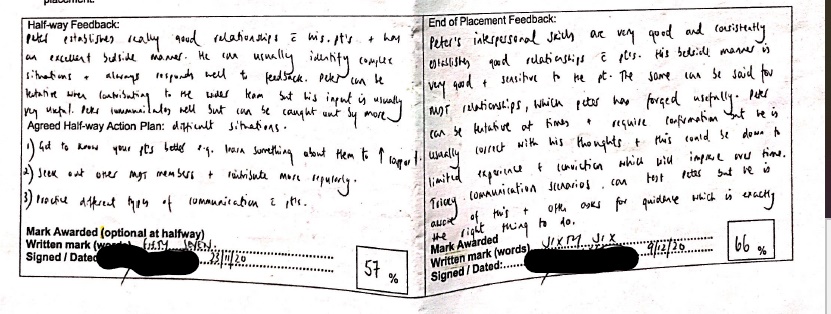 placement.
Half-way Feedback:
Peter establishes really good relationships c̄ his. pt's + has
an excellent bedside manner. He can usually identify complex
situations + always responds well to feedback. Peter can be
tentative when contributing to the wider team but his input is usually
very useful. Peter communicates well but can be caught out by more
Agreed Half-way Action Plan: difficult situations.
1) Get to know your pt's better e.g. learn something about them to ↑ rapport.
2) Seek out other MDT members + contribute more regularly.
3) Practice different types of communication c̄ pts.
Mark Awarded (optional at halfway)
Written mark (words) FIFTY SEVEN
Signed / Dated 23/11/20
57 %
End of Placement Feedback:
Peter's interpersonal skills are very good and consistently
establishes good relationships c̄ pts. His bedside manner is
very good + sensitive to the pt. The same can be said for
MDT relationships, which peter has forged usefully. Peter
can be tentative at times + require confirmation but he is
usually correct with his thoughts + this could be down to
limited experience + conviction which will improve over time.
Tricky communication scenarios can test Peter but he is
aware of this + often asks for guidance which is exactly
the right thing to do.
Mark Awarded
Written mark (words) SIXTY SIX
Signed / Dated: 9/12/20
66 %